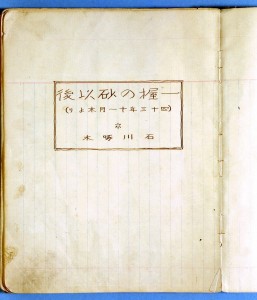 一握の砂以後
(四十三年十一月末より)
石川啄木